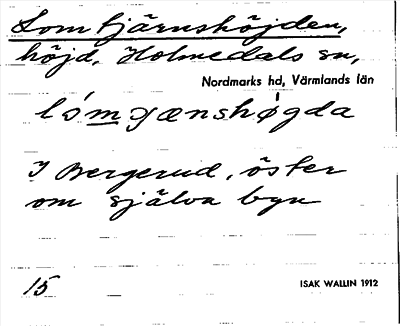 Lomtjärnshöjden,
höjd, Holmedals sn,
Nordmarks hd, Värmlands län
lómɟænshǿgda
I Bergerud, öster
om själva byn
15
ISAK WALLIN 1912